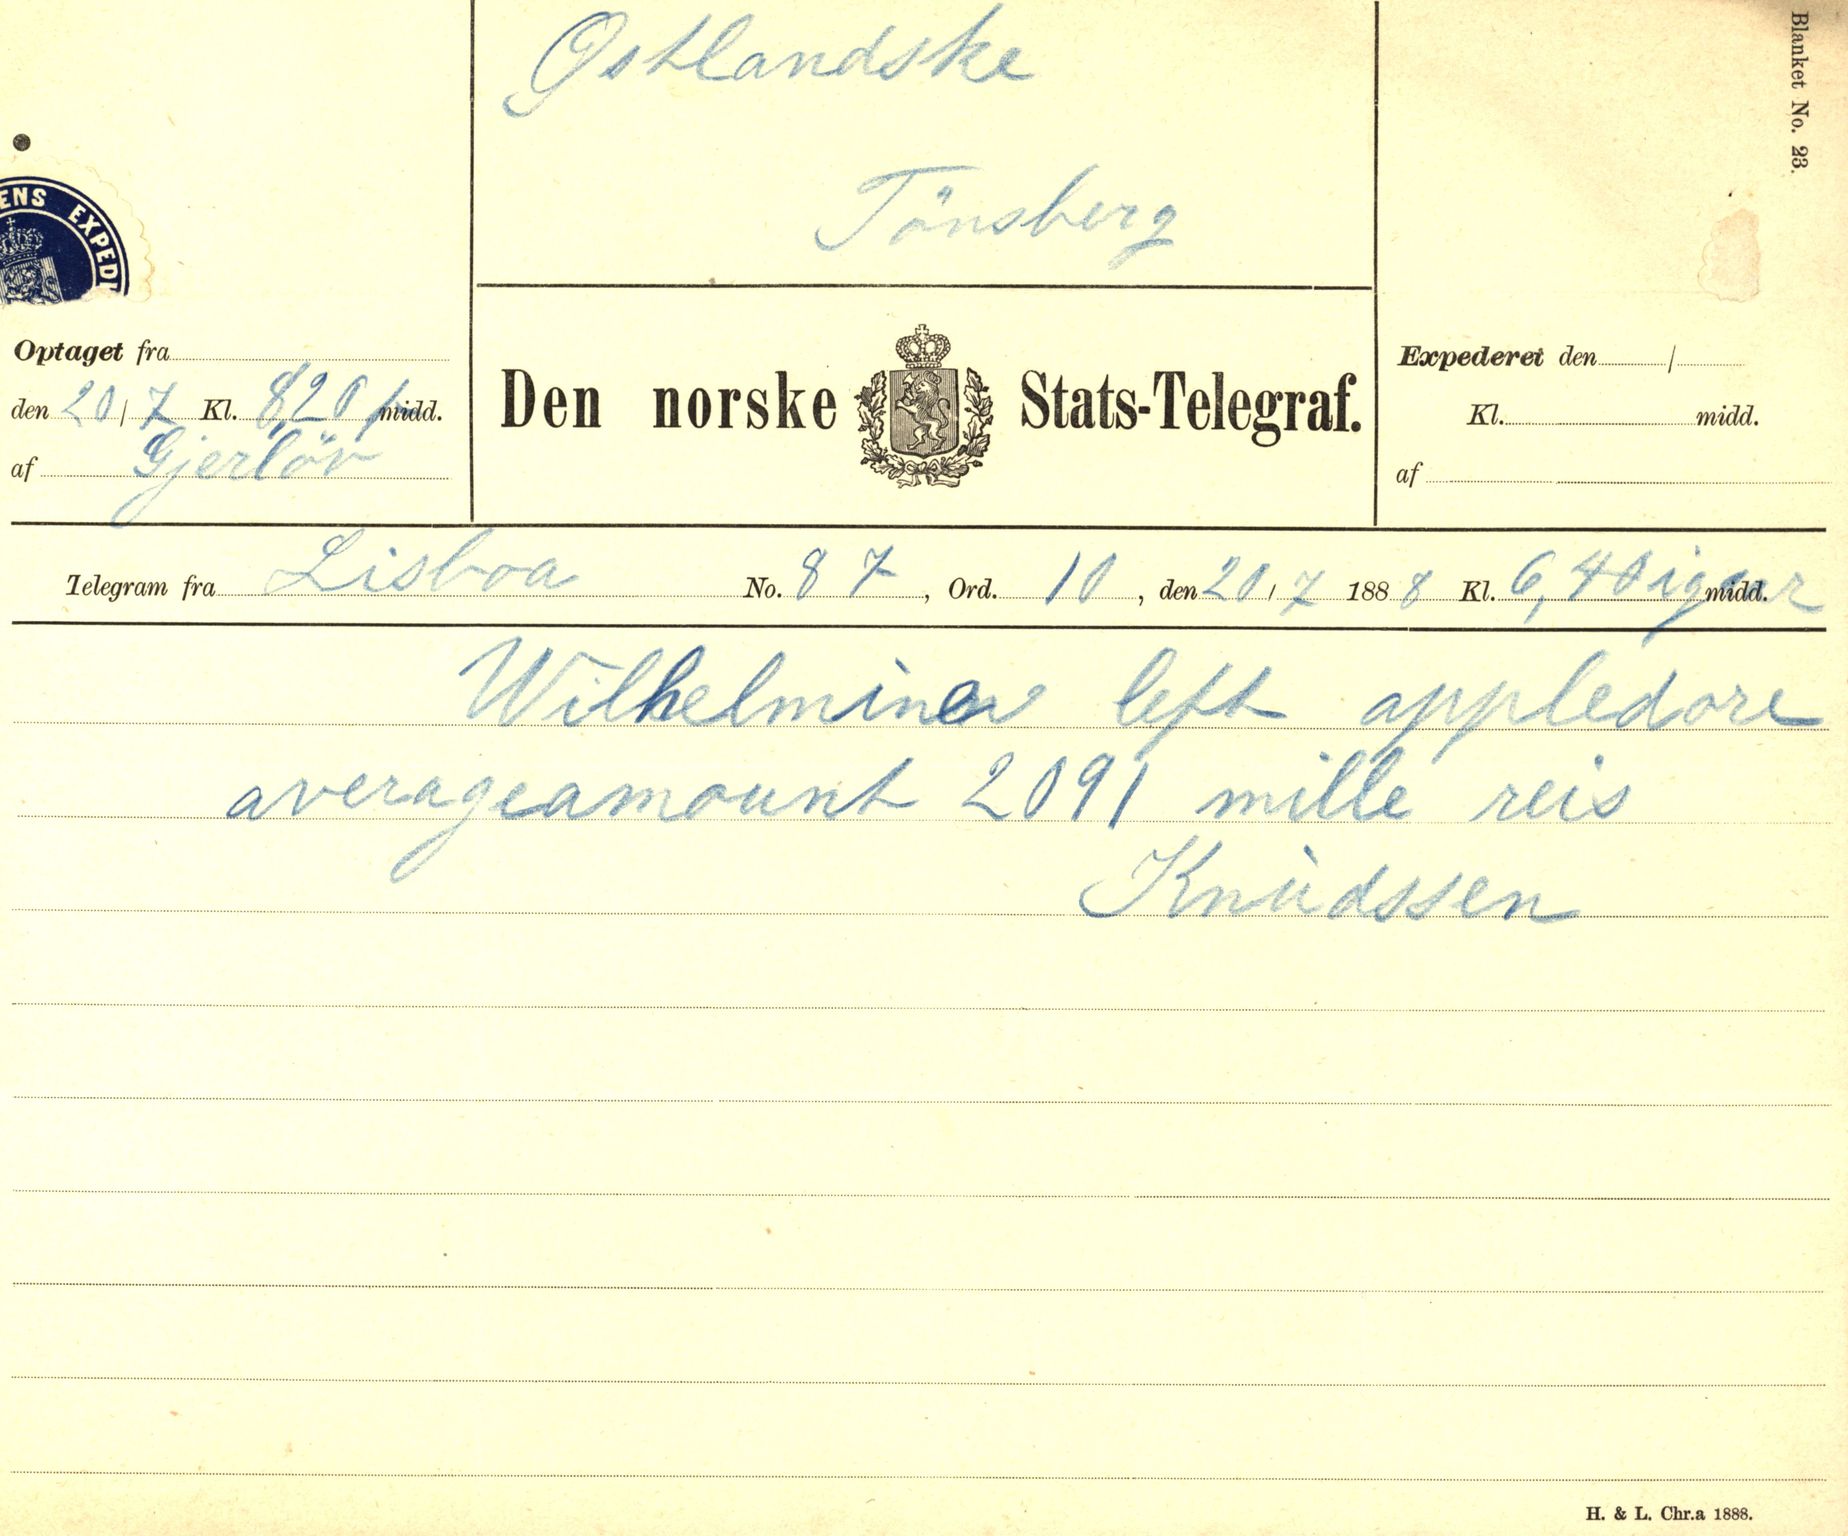 Blanket No. 23.
Ostlandske
Tönsberg
ENS EXPEDI
Optaget fra
den 20/7 Kl. 8,20 p midd.
af Gjerlöv
Den norske Stats-Telegraf.
Expederet den /
Kl. midd.
af
Telegram fra Lisboa No. 87, Ord. 10, den 20/7 1888 Kl. 6,40 igaar midd.
Wilhelmine left appledore
averageamount 2091 mille reis
Knudssen
H. & L. Chr.a 1888.